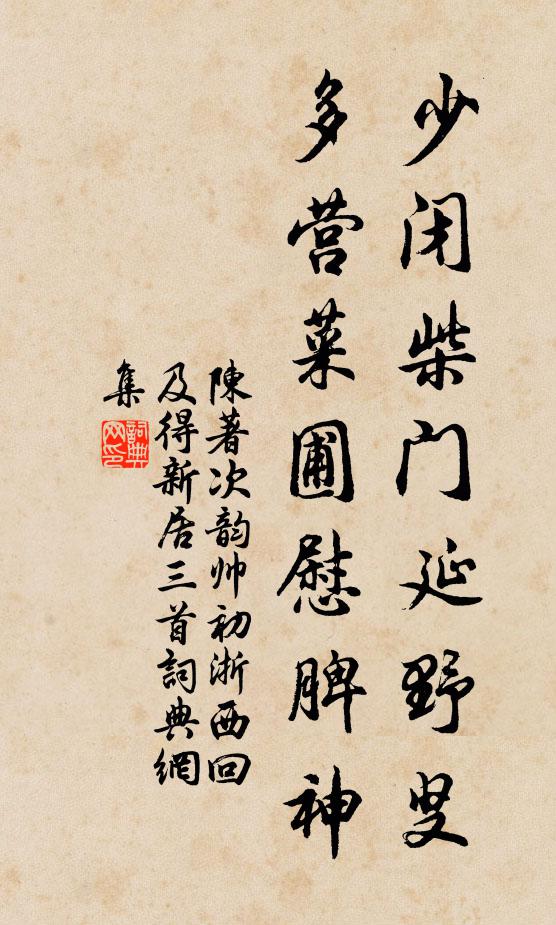 少闭柴门延野叟
多营菜圃慰脾神
陳著次韵帅初浙西回
及得新居三首詞典網
集
詞典
网印